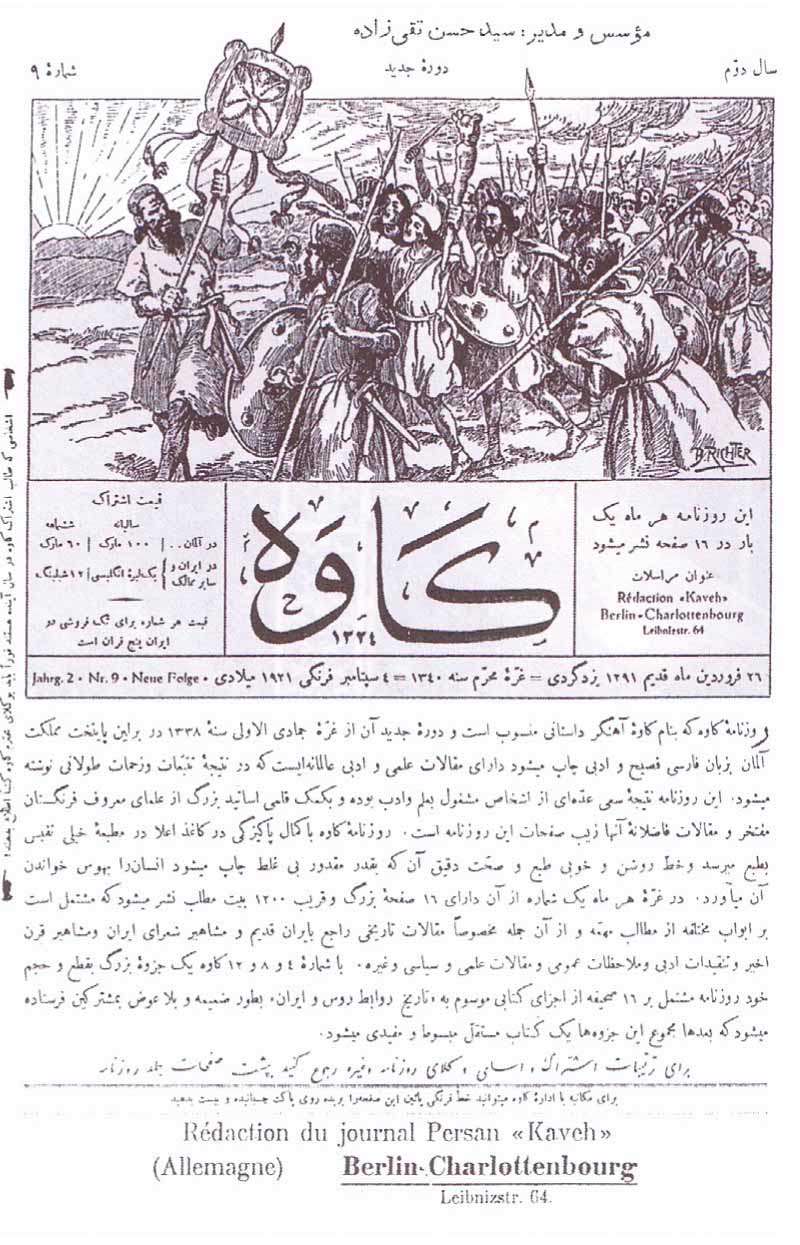 مؤسس و مدیر: سید حسن تقی زاده
سال دوّم
دورهٔ جدید
شمارهٔ ۹
B. RICHTER
این روزنامه هر ماه یک
بار در ۱۶ صفحه نشر میشود
عنوان مراسلات
Rédaction «Kaveh»
Berlin-Charlottenbourg
Leibnizstr. 64
کاوه
۱۳۳٤
قیمت اشتراک
سالیانه ششماهه
در آلمان.. | ۱۰۰ مارک | ۶۰ مارک
در ایران و سایر ممالک } یک لیرهٔ انگلیسی | ۱۲ شیلینگ
قیمت هر شماره برای تک فروشی در
ایران پنج قران است
۲۶ فروردین ماه قدیم ۱۲۹۱ یزدگردی = غرّهٔ محرّم سنه ۱۳٤۰ = ٤ سپتامبر فرنگی ۱۹۲۱ میلادی • Jahrg. 2 • Nr. 9 • Neue Folge
روزنامهٔ کاوه که بنام کاوهٔ آهنگر داستانی منسوب است و دورهٔ جدید آن از غرّهٔ جمادی الاولی سنهٔ ۱۳۳۸ در برلین پایتخت مملکت
آلمان بزبان فارسی فصیح و ادبی چاپ میشود دارای مقالات علمی و ادبی عالمانه‌ایست که در نتیجهٔ تتبّعات و زحمات طولانی نوشته
میشود. این روزنامه نتیجهٔ سعی عدّه‌ای از اشخاص مشغول بعلم و ادب بوده و بکمک قلمی اساتید بزرگ از علمای معروف فرنگستان
مفتخر و مقالات فاضلانهٔ آنها زیب صفحات این روزنامه است. روزنامهٔ کاوه باکمال پاکیزگی در کاغذ اعلا در مطبعهٔ خیلی نفیس
بطبع میرسد و خط روشن و خوبی طبع و صحّت دقیق آن که بقدر مقدور بی غلط چاپ میشود انسان‌را بهوس خواندن
آن میآورد. در غرّهٔ هر ماه یک شماره از آن دارای ۱۶ صفحهٔ بزرگ و قریب ۱۲۰۰ بیت مطلب نشر میشود که مشتمل است
بر ابواب مختلفه از مطالب مهمّه و از آن جمله مخصوصاً مقالات تاریخی راجع بایران قدیم و مشاهیر شعرای ایران و مشاهیر قرن
اخیر و تنقیدات ادبی و ملاحظات عمومی و مقالات علمی و سیاسی و غیره. با شمارهٔ ٤ و ۸ و ۱۲ کاوه یک جزوهٔ بزرگ بقطع و حجم
خود روزنامه مشتمل بر ۱۶ صحیفه از اجزای کتابی موسوم به «تاریخ روابط روس و ایران» بطور ضمیمه و بلا عوض بمشترکین فرستاده
میشود که بعدها مجموع این جزوه‌ها یک کتاب مستقلّ مبسوط و مفیدی میشود.
برای ترتیبات اشتراک و اسامی وکلای روزنامه وغیره رجوع کنید پشت صفحات جلد روزنامه
برای مکاتبه با ادارهٔ کاوه میتوانید خطّ فرنگی پائین این صفحه‌را بریده روی پاکت چسبانیده و بپست بدهید
Rédaction du journal Persan «Kaveh»
(Allemagne) Berlin-Charlottenbourg
Leibnizstr. 64.
اشخاصی که طالب اشتراک کاوه در سال آینده هستند فوراً باید بوکلای محترم کاوه کتباً اطلاع بدهند!